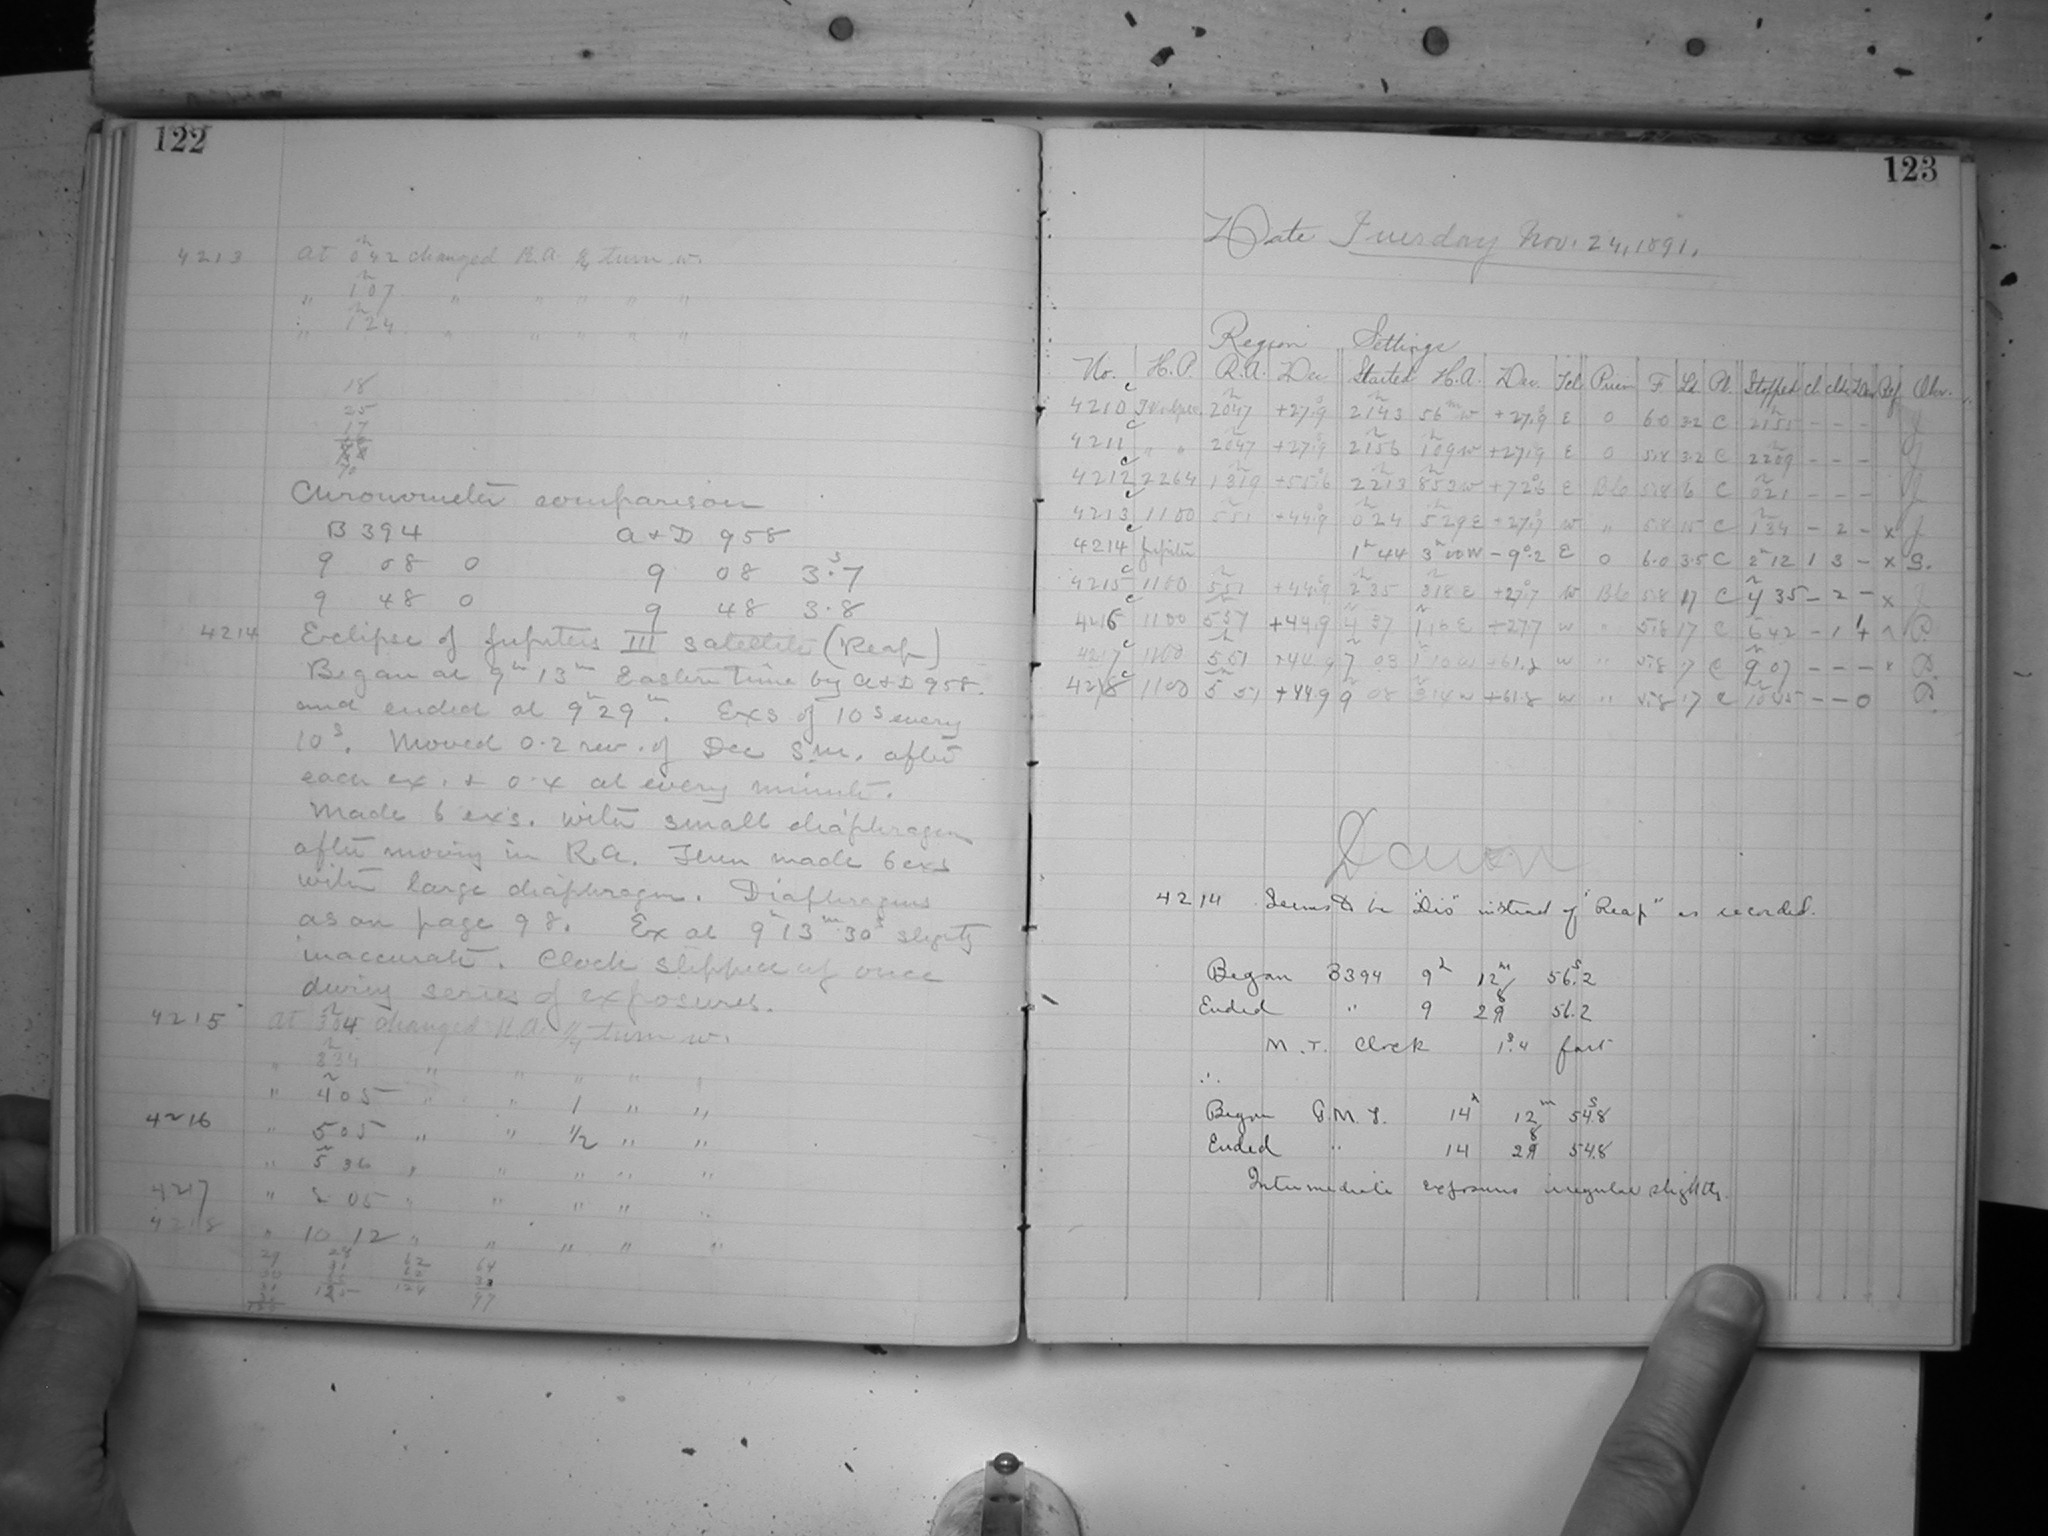 122
4213 At 0 42 changed R.A. 1/4 turn w.
" 1 07 " " " " "
" 1 24 " " " " "
18
25
17
70
Chronometer comparison
B 394 A+D 958
9 08 0 9 08 3.7
9 48 0 9 48 3.8
4214 Eclipse of Jupiters III satellite (Reap)
Began at 9h 13m Eastern Time by A+D 958.
and ended at 9h 29m. Exs of 10s every
10s. Moved 0.2 rev. of Dec S.M. after
each ex. + 0.4 at every minute.
Made 6 exs. with small diaphragm
after moving in R.A. Then made 6 exs
with large diaphragm. Diaphragms
as on page 98. Ex at 9h 13m 30s slightly
inaccurate. Clock slipped up once
during series of exposures.
4215 At 3 04 changed R.A. 1/4 turn w.
" 334 " " " " "
" 4 05 " " 1 " "
4216 " 5 05 " " 1/2 " "
" 5 36 " " " " "
4217 " 05 " " " " "
4218 " 10 12 " " " " "
29 28 62 64
125 124 97
123
Date Tuesday Nov. 24, 1891.
Region Settings
No. H.P. R.A. Dec Started H.A. Dec. Tel Prism F. Ld Pl. Stopped Cl Ref Obs.
4210 c 2047 +27.9 2143 56m w +27.9 E 0 6.0 3.2 C 2151 - - - J
4211 c " " 2047 +27.9 2156 109w +27.9 E 0 5.8 3.2 C 2209 - - - J
4212 c 2264 1319 +55.6 2213 853w +72.6 E 5.8 6 C 021 - - - J
4213 c 1100 551 +44.9 024 529E +27.9 w " 5.8 15 C 134 - 2 - x J
4214 c Jupiter 1h 44 3h 00w -9.2 E 0 6.0 3.5 C 2h 12 1 3 - x S.
4215 c 1100 551 +44.9 235 318E +27.7 w 5.8 17 C 4 35 - 2 - x J
4216 c 1100 557 +44.9 4 37 116E +27.7 w " 5.8 17 C 642 - 1
4217 c 1100 551 +44.9 7 03 110w +61.8 w " 5.8 17 C 9 07 - - - x
4218 c 1100 5 51 +44.9 9 08 314w +61.8 w " 5.8 17 C 1045 - - 0
Dawn
4214 Seems to be "Dis" instead of "Reap" as recorded.
Began B394 9h 12m 56s.2
Ended " 9 28 56.2
M.T. Clock 1s.4 fast
∴
Began G.M.T. 14h 12m 54s.8
Ended " 14 28 54.8
Intermediate exposures irregular slightly.